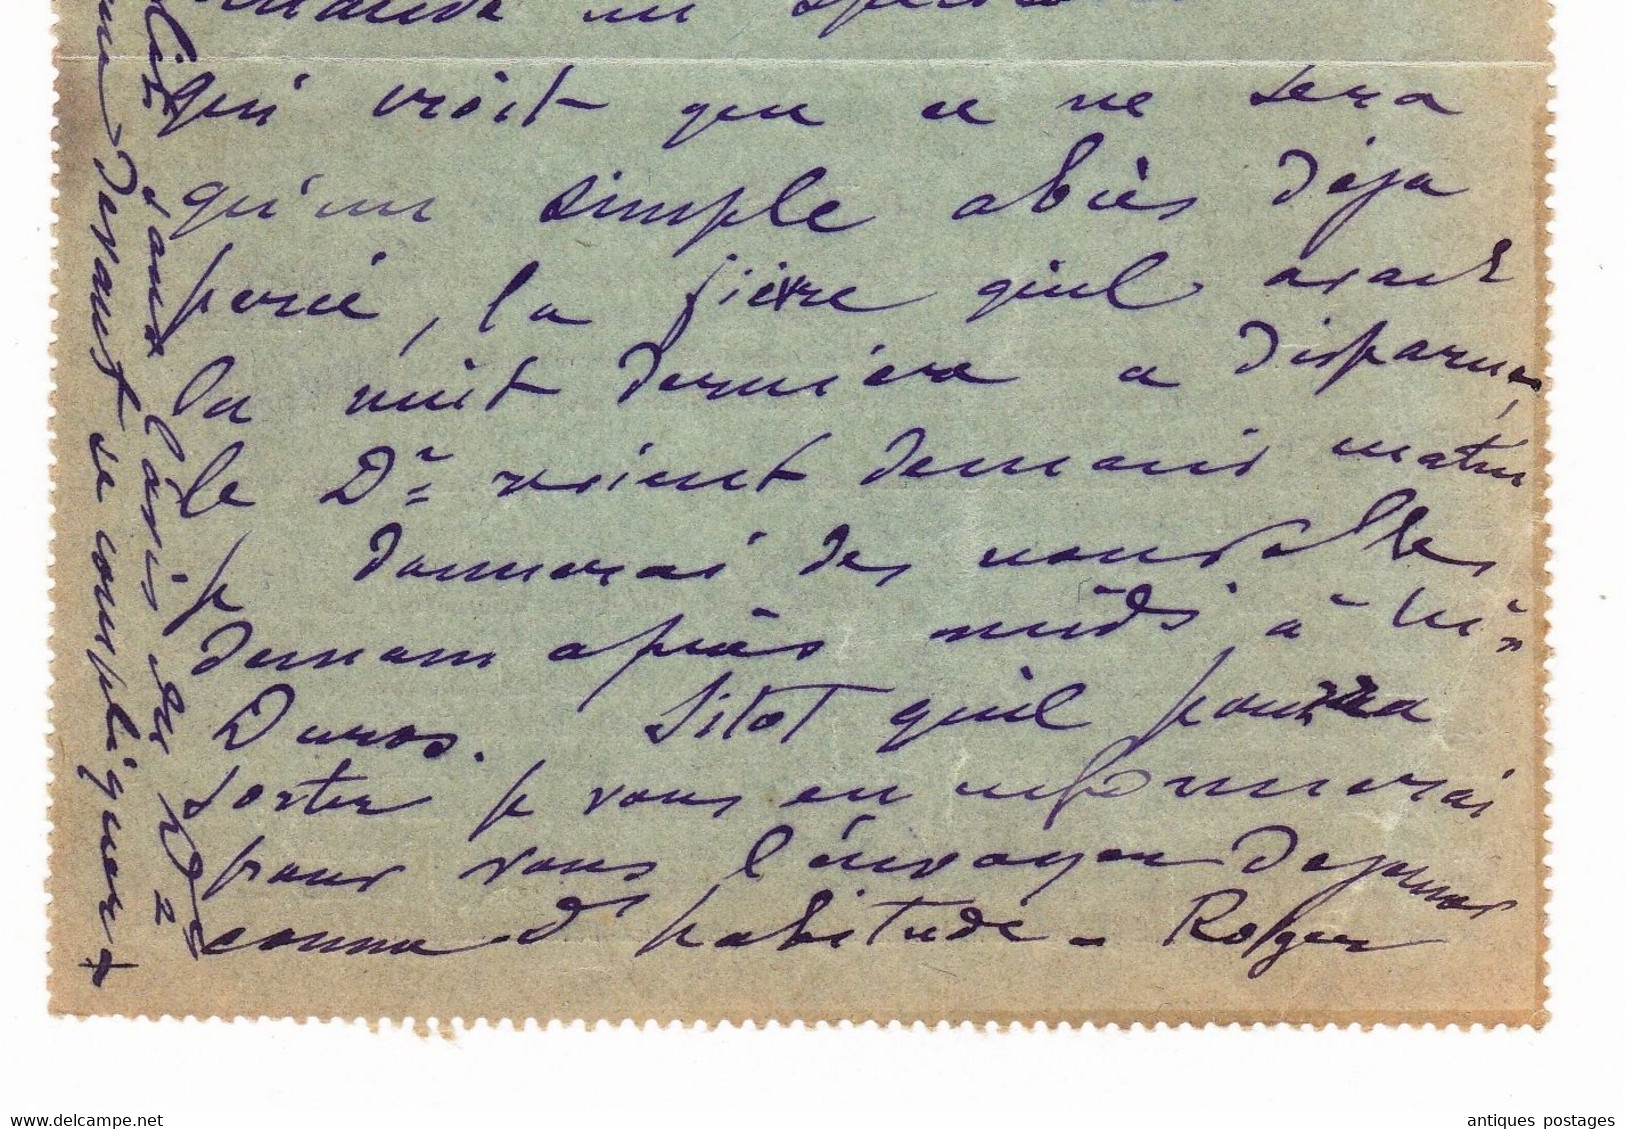 qui croit que ce ne sera
qu'un simple abcès déja
percé, la fièvre qu'il avait
la nuit dernière a disparu,
le Dr vient demain matin
je donnerai des nouvelles
demain après midi à
Duros. Sitot qu'il pourra
sortir je vous en informerai
pour vous l'envoyer dejeuner
comme d'habitude - Roger
sauf l'avis du Dr
devant se compliquer +
delcampe.net
antiques postages